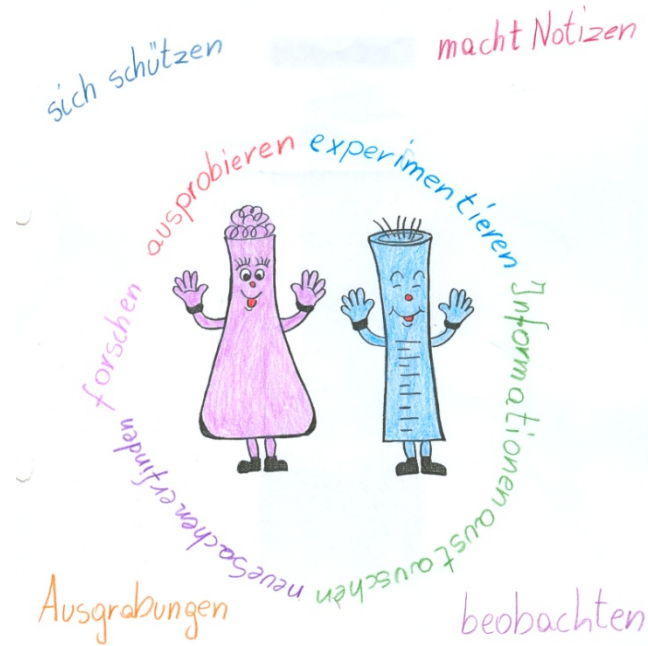 sich schützen
macht Notizen
ausprobieren
experimentieren
Informationen austauschen
neue Sachen erfinden
forschen
Ausgrabungen
beobachten